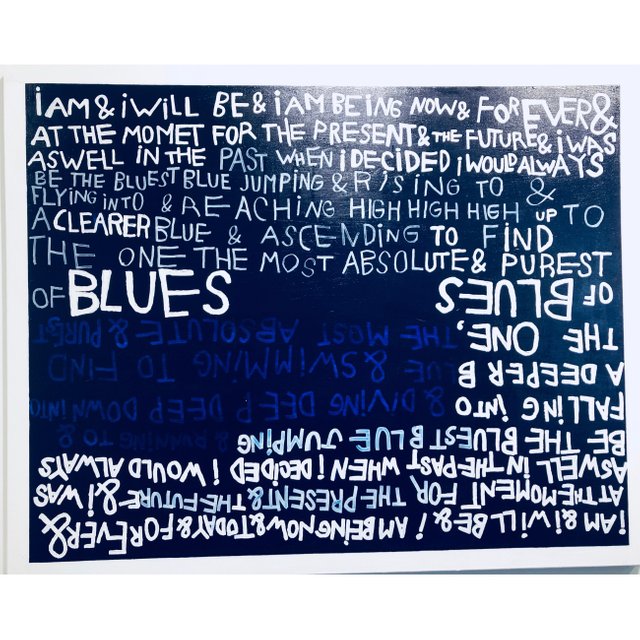 iAM & iWiLL BE & iAM BEiNG NOW & FOREVER &
AT THE MOMET FOR THE PRESENT & THE FUTURE & i WAS
ASWELL iN THE PAST WHEN i DECiDED i WOULD ALWAYS
BE THE BLUEST BLUE JUMPiNG & RiSiNG TO &
FLYiNG iNTO & REACHiNG HiGH HiGH HiGH UP TO
A CLEARER BLUE & ASCENDiNG TO FiND
THE ONE THE MOST ABSOLUTE & PUREST
OF BLUES
i AM & i WiLL BE & i AM BEiNG NOW & TODAY & FOREVER &
AT THE MOMENT FOR THE PRESENT & THE FUTURE & i WAS
ASWELL iN THE PAST WHEN i DECiDED i WOULD ALWAYS
BE THE BLUEST BLUE JUMPiNG & RUNNiNG TO &
FALLiNG iNTO & DiViNG DEEP DEEP DOWN iNTO
A DEEPER BLUE & SWiMMiNG TO FiND
THE ONE, THE MOST ABSOLUTE & PUREST
OF BLUES